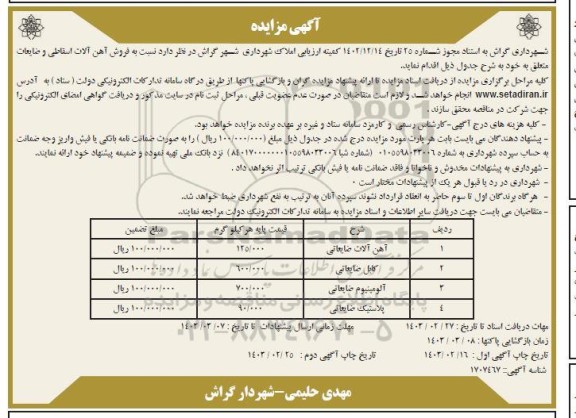 آگهی مزایده
شهرداری گراش به استناد مجوز شماره ۲۵ تاریخ ۱۴۰۲/۱۲/۱۴ کمیته ارزیابی املاک شهرداری شهر گراش در نظر دارد نسبت به فروش آهن آلات اسقاطی و ضایعات
متعلق به خود به شرح جدول ذیل اقدام نماید.
کلیه مراحل برگزاری مزایده از دریافت اسناد مزایده تا ارائه پیشنهاد مزایده گران و بازگشایی پاکتها از طریق درگاه سامانه تدارکات الکترونیکی دولت ( ستاد ) به آدرس
www.setadiran.ir انجام خواهد شد و لازم است متقاضیان در صورت عدم عضویت قبلی ، مراحل ثبت نام در سایت مذکور و دریافت گواهی امضای الکترونیکی را
جهت شرکت در مناقصه محقق سازند .
- کلیه هزینه های درج آگهی-کارشناس رسمی و کارمزد سامانه ستاد و غیره بر عهده برنده مزایده خواهد بود.
- پیشنهاد دهندگان می بایست بابت هر پارت مورد مزایده درج شده در جدول ذیل مبلغ (۱۰۰/۰۰۰/۰۰۰ ریال ) را به صورت ضمانت نامه بانکی یا فیش واریز وجه ضمانت
به حساب سپرده شهرداری به شماره ۰۱۰۵۵۹۸۰۳۲۰۰۶ (شماره شبا نزد بانک ملی تهیه نموده و ضمیمه پیشنهاد خود ارائه نمایند.
-شهرداری به پیشنهادات مخدوش و ناخوانا و فاقد ضمانت نامه یا فیش بانکی ترتیب اثر نخواهد داد .
- شهرداری در رد یا قبول هر یک از پیشنهادات مختار است
- هرگاه برندگان اول تا سوم حاضر به انعقاد قرارداد نشوند سپرده آنان به ترتیب به نفع شهرداری ضبط خواهد شد.
-متقاضیان می بایست جهت دریافت سایر اطلاعات و اسناد مزایده به سامانه تدارکات الکترونیک دولت مراجعه نمایند.
ردیف شرح قیمت پایه هر کیلو گرم مبلغ تضمین
۱ آهن آلات ضایعاتی ۱۲۵/۰۰۰ ۱۰۰/۰۰۰/۰۰۰ ریال
۲ کابل ضایعاتی ۶۰۰/۰۰۰ ۱۰۰/۰۰۰/۰۰۰ ریال
۳ آلومینیوم ضایعاتی ۷۰۰/۰۰۰ ۱۰۰/۰۰۰/۰۰۰ ریال
۴ پلاستیک ضایعاتی ۹۰/۰۰۰ ۱۰۰/۰۰۰/۰۰۰ ریال
مهلت دریافت اسناد تا تاریخ : ۲۷ / ۰۲ / ۱۴۰۳ مهلت زمانی ارسال پیشنهادات تا تاریخ : ۰۷ / ۰۳ / ۱۴۰۳
زمان بازگشایی پاکتها : ۰۸ / ۰۳ / ۱۴۰۳
تاریخ چاپ آگهی اول : ۱۶ / ۰۲ / ۱۴۰۳ تاریخ چاپ آگهی دوم : ۲۵ / ۰۲ / ۱۴۰۳
شناسه آگهی: ۱۷۰۷۴۶۷
مهدی حلیمی-شهردار گراش
ParsNamadData
پایگاه اطلاع رسانی مناقصه و مزایده
۰۲۱-۸۸۳۴۹۶۷۰-۵